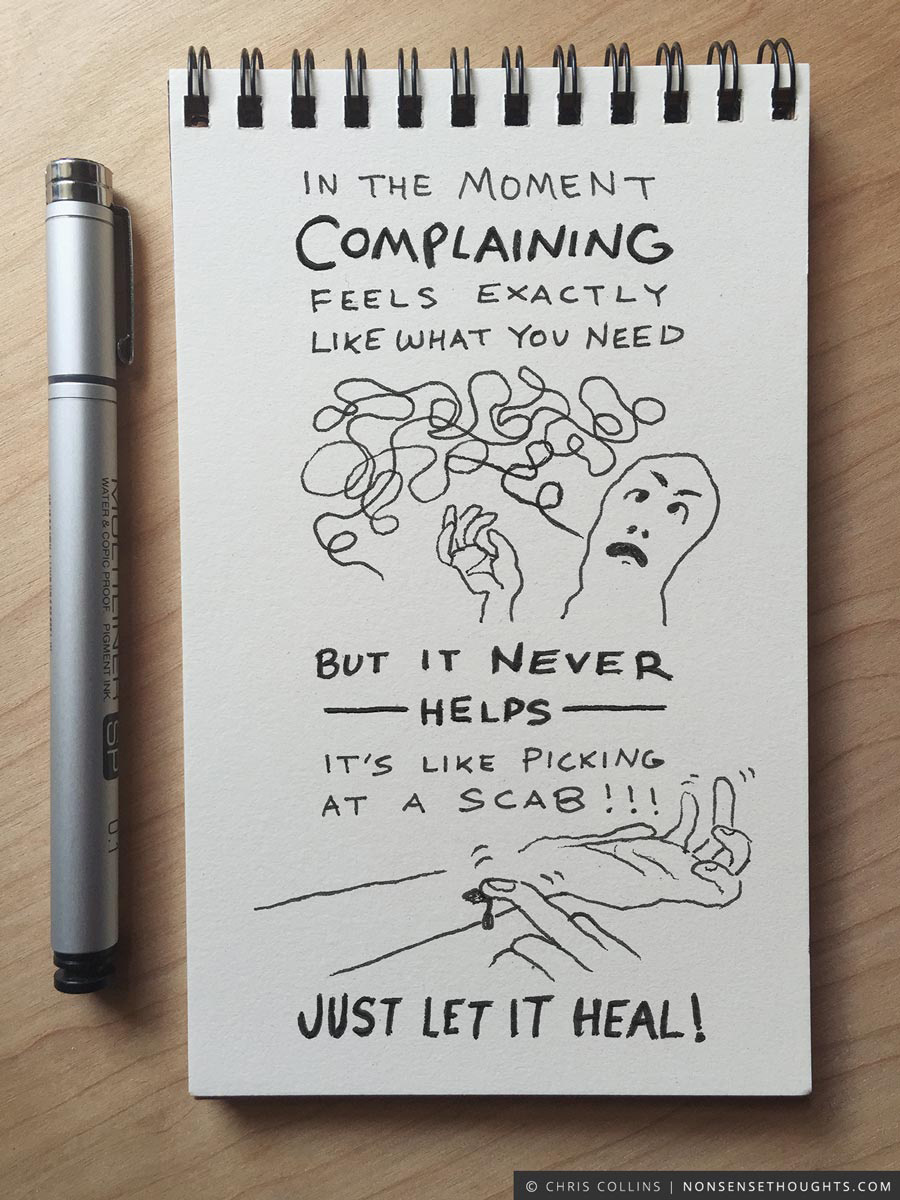 IN THE MOMENT
COMPLAINING
FEELS EXACTLY
LIKE WHAT YOU NEED
BUT IT NEVER
HELPS
IT'S LIKE PICKING
AT A SCAB!!!
JUST LET IT HEAL!
MULTILINER SP 0.1
WATER & COPIC PROOF. PIGMENT INK
© CHRIS COLLINS | NONSENSETHOUGHTS.COM